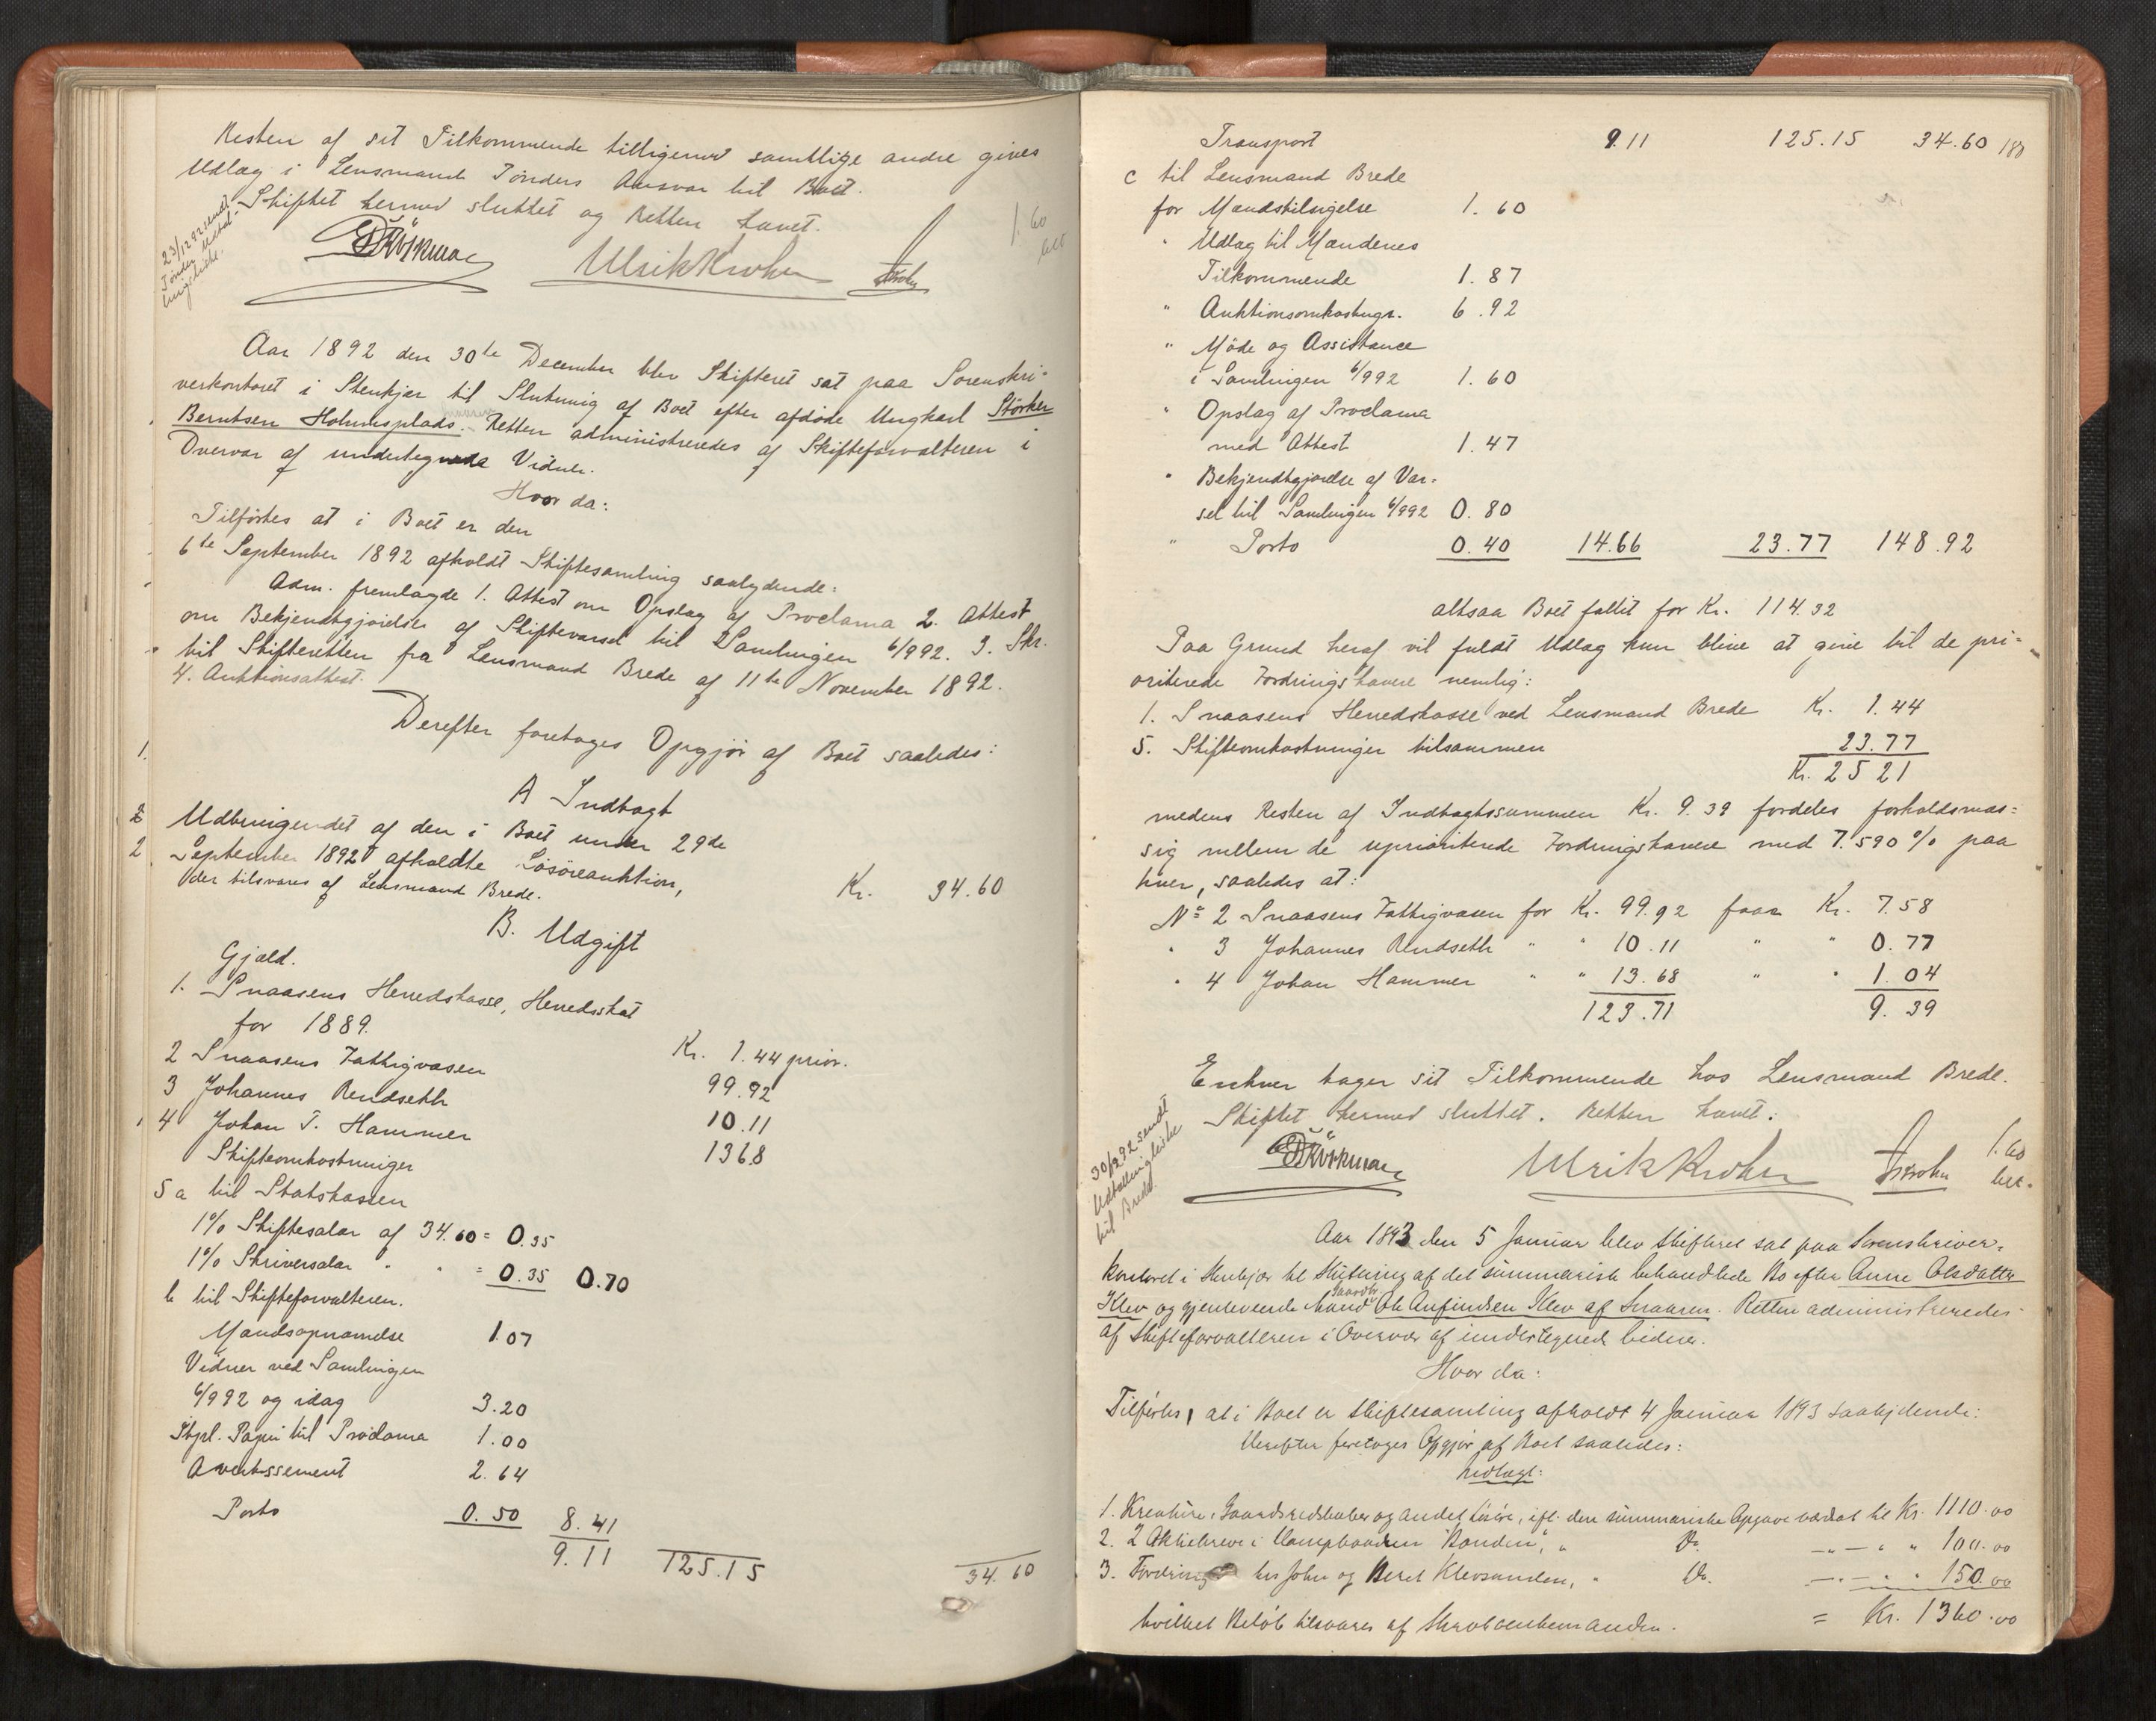 Resten af sit Tilkommende tilligemed samtlige andre gives
Udlæg i Lensmand Tönders Ansvar til Boet.
Skiftet hermed sluttet og Retten hævet.
23/12 92 sendt
Tönder Udtal-
ingsliste.
1.60
bet
Ulrik Krohn
Krohn
Aar 1892 den 30te December blev Skifteret sat paa Sorenskri-
verkontoret i Stenkjær til Slutning af Boet efter afdöde Ungkarl Störker
Berntsen Holmsplads. Retten administreredes af Skifteforvalteren i
Overvær af undertegnede Vidner.
Hvor da:
Tilförtes at i Boet er den
6te September 1892 afholdt Skiftesamling saalydende:
Adm. fremlagde 1. Attest om Opslag af Proclama 2. Attest
om Bekjendtgjörelse af Skiftevarsel til Samlingen 6/992. 3. Skr.
til Skifteretten fra Lensmand Brede af 11te November 1892.
4. Auktionsattest.
Derefter foretoges Opgjör af Boet saaledes:
1.
A Indtægt
2 Udbringendet af den i Boet under 29de
2 September 1892 afholdte Lösöreauktion,
der tilsvares af Lensmand Brede. Kr. 34.60
B. Udgift
Gjæld.
1. Snaasens Herredskasse, Herredsskat
for 1889. Kr. 1.44 prior.
2 Snaasens Fattigvæsen 99.92
3 Johannes Rendseth 10.11
4 Johan T. Hammer 13 68
Skifteomkostninger
5 a til Statskassen
1% Skiftesalær af 34.60 = 0.35
1% Skriversalær " " = 0.35 0.70
b til Skifteforvalteren.
Mandsopnævnelse 1.07
Vidner ved Samlingen
6/992 og idag 3.20
Stpl. Papir til Proclama 1.00
Avertissement 2.64
Porto 0.50 8.41
9.11 125.15 34.60
Transport 9.11 125.15 34.60 183
c til Lensmand Brede
for Mandstilsigelse 1.60
" Udlæg til Mændenes
Tilkommende 1.87
" Auktionsomkostngr. 6.92
" Möde og Assistance
i Samlingen 6/992 1.60
" Opslag af Proclama
med Attest 1.47
" Bekjendtgjörelse af Var-
sel til Samlingen 6/992 0.80
" Porto 0.40 14.66 23.77 148.92
altsaa Boet fallit for Kr. 114.32
Paa Grund heraf vil fuldt Udlæg kun blive at give til de pri-
oriterede Fordringshavere nemlig:
1. Snaasens Herredskasse ved Lensmand Brede Kr. 1.44
5. Skifteomkostninger tilsammen 23.77
Kr. 25 21
medens Resten af Indtægtssummen Kr. 9.39 fordeles forholdsmæs-
sig mellem de uprioriterede Fordringshavere med 7.590 % paa
hver, saaledes at:
No 2 Snaasens Fattigvæsen for Kr. 99.92 faar Kr. 7.58
" 3 Johannes Rendseth " " 10.11 " " 0.77
" 4 Johan Hammer " " 13.68 " " 1.04
123.71 9.39
Enhver tager sit Tilkommende hos Lensmand Brede.
Skiftet hermed sluttet. Retten hævet.
30/1292 sendt
Udtallingsliste
til Brede
Ulrik Krohn
Krohn
1.60
bet.
Aar 1893 den 5 Januar blev Skifteret sat paa Sorenskriver-
kontoret i Stenkjær til Slutning af det summariske behandlede Bo efter Anne Olsdatter
Klev og gjenlevende Mand Gaardbr Ole Anfindsen Klev af Snaasen. Retten administreredes
af Skifteforvalteren i Overvær af undertegnede Vidner.
Hvor da:
Tilförtes, at i Boet er Skiftesamling afholdt 4 Januar 1893 saalydende:
Derefter foretoges Opgjör af Boet saaledes:
Indtægt:
1. Kreature, Gaardsredskaber og andet Lösöre, ifl. den summariske Opgave værdsat til Kr. 1110.00
2. 2 Aktiebreve i Dampbaaden "Bonden", " Do. " " 100.00
3. Fordring hos John og Beret Klevsanden, " Do. " " 150.00
hvilket Belöb tilsvares af Skroboenkemanden. = Kr. 1360.00